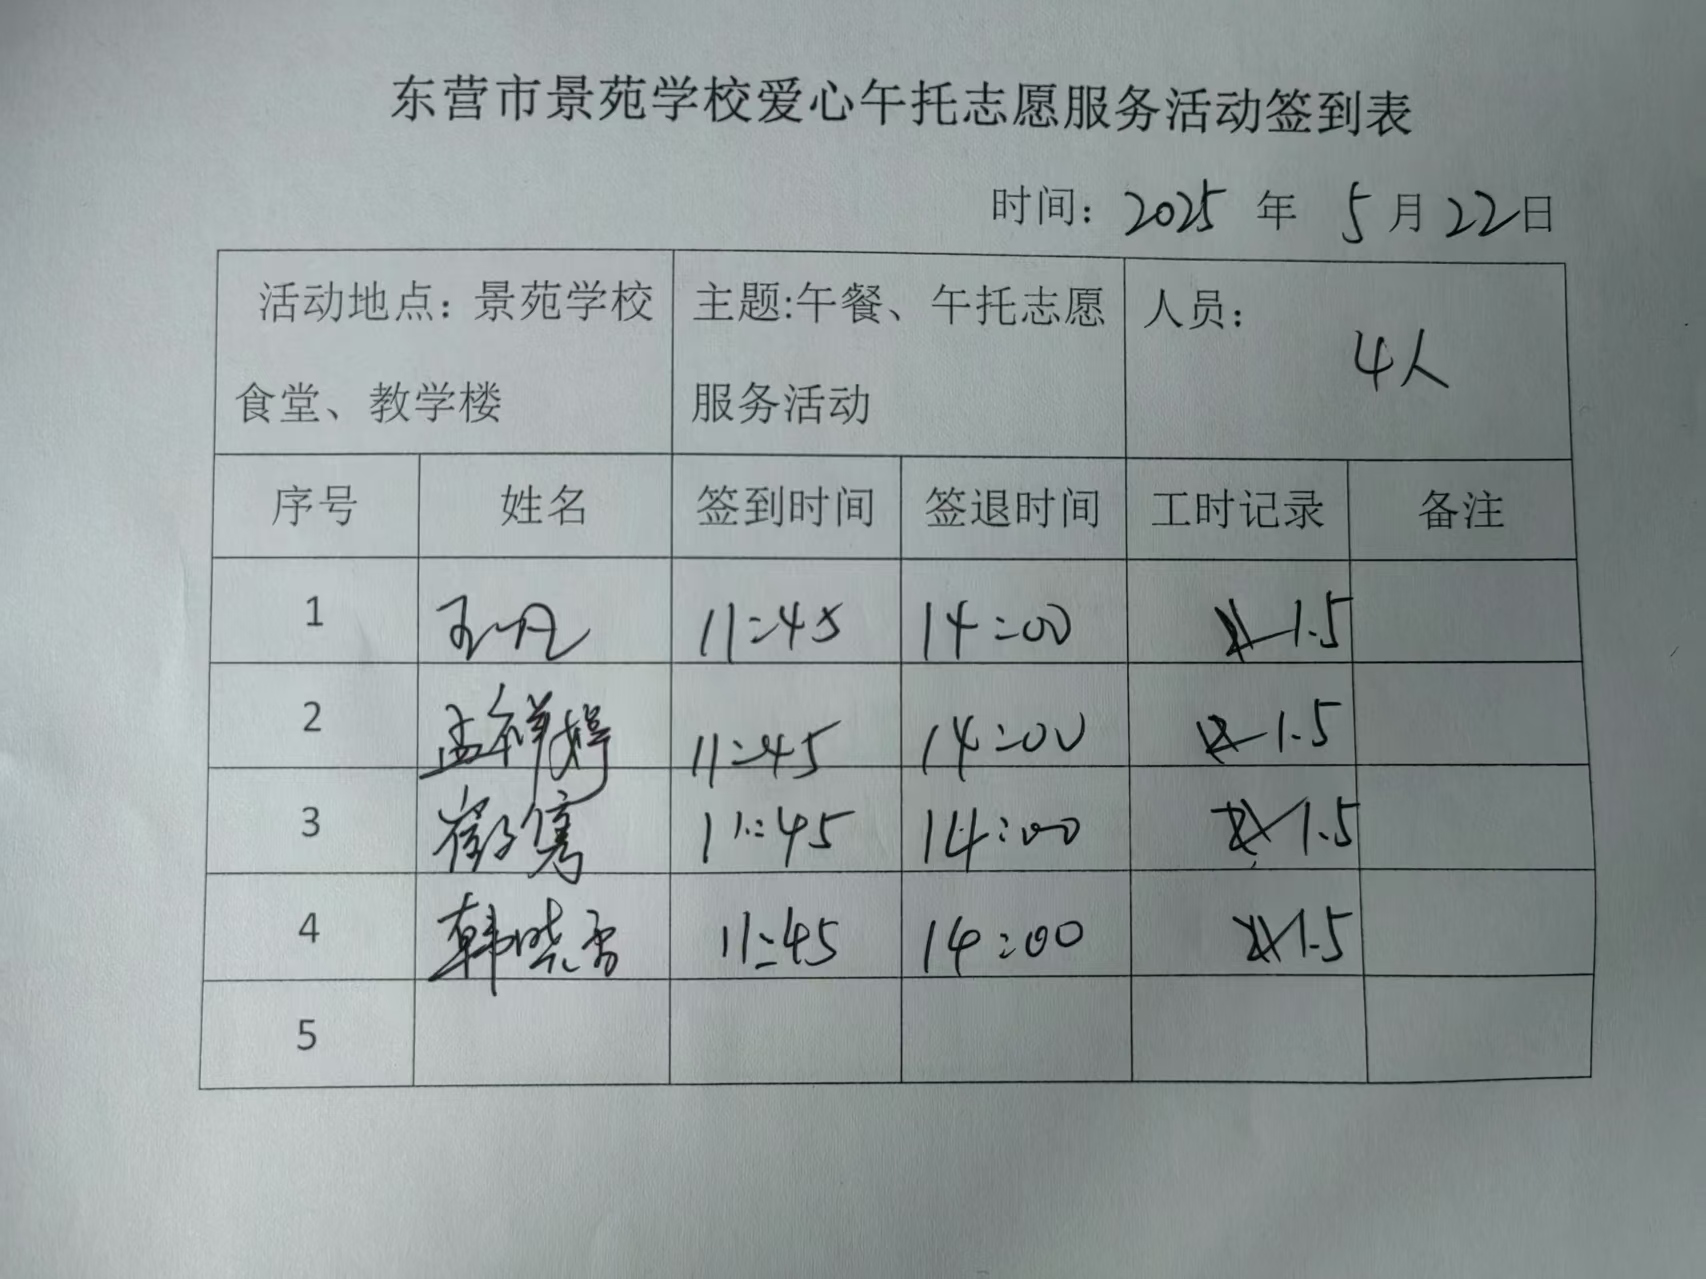 东营市景苑学校爱心午托志愿服务活动签到表
时间：2025 年 5 月 22 日
活动地点：景苑学校 主题:午餐、午托志愿 人员：
4人
食堂、教学楼 服务活动
序号 姓名 签到时间 签退时间 工时记录 备注
1 11:45 14:00 1.5
2 孟祥婷 11:45 14:00 1.5
3 11:45 14:00 1.5
4 韩晓雪 11:45 14:00 1.5
5